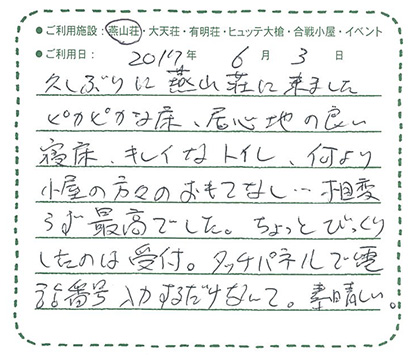 ●ご利用施設：燕山荘・大天荘・有明荘・ヒュッテ大槍・合戦小屋・イベント
●ご利用日： 2017年 6月 3日
久しぶりに燕山荘に来ました
ピカピカな床、居心地の良い
寝床、キレイなトイレ、何より
小屋の方々のおもてなし…相変
らず最高でした。ちょっとびっくり
したのは受付。タッチパネルで電
話番号入力するだけなんて。素晴しい。